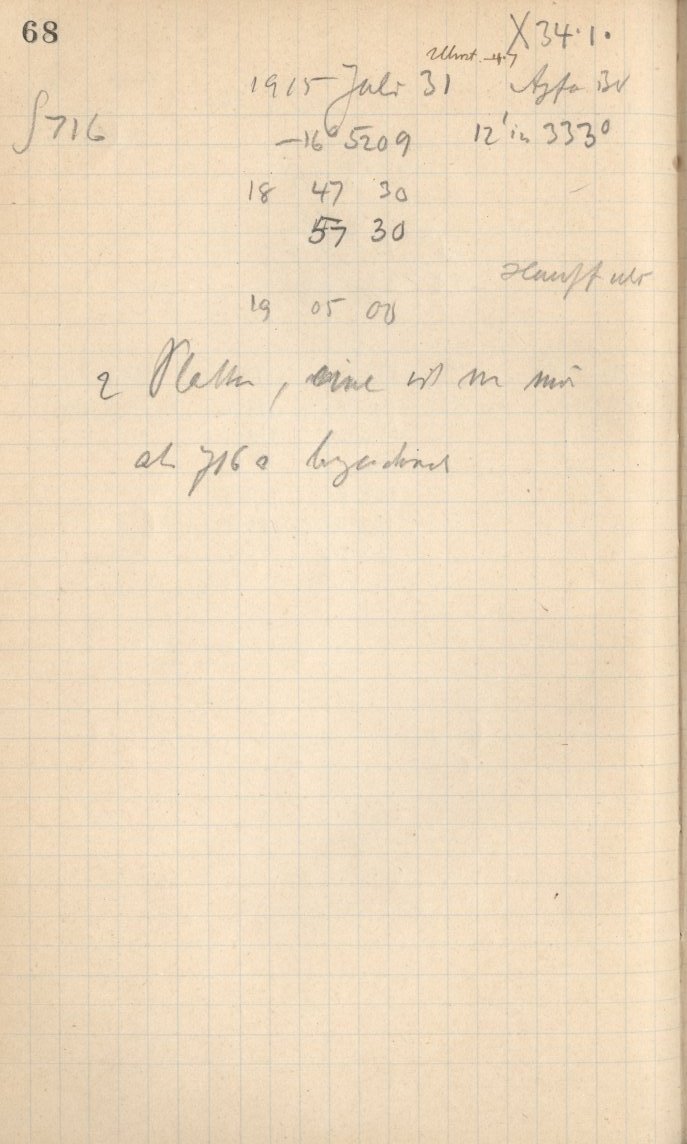 68
X 34.1.
1915 Juli 31 Agfa
S 716 -16° 5209 12' in 333°
18 47 30
57 30
Hauff
19 05 00
2 Platten, eine ist
als 716 a bezeichnet